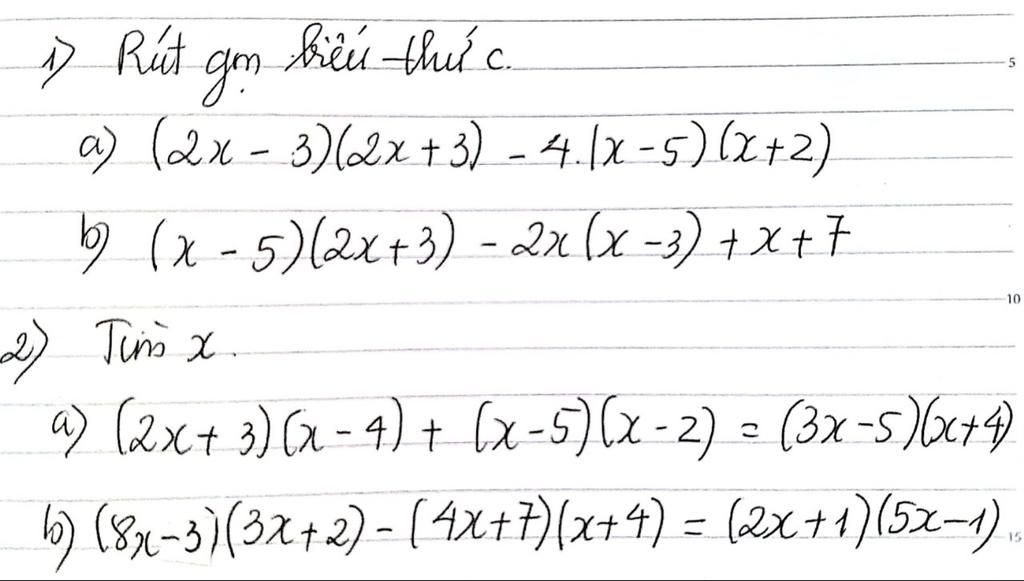 1) Rút gọn biểu thức.
5
a) (2x - 3)(2x + 3) - 4.(x - 5)(x + 2)
b) (x - 5)(2x + 3) - 2x(x - 3) + x + 7
10
2) Tìm x.
a) (2x + 3)(x - 4) + (x - 5)(x - 2) = (3x - 5)(x + 4)
b) (8x - 3)(3x + 2) - (4x + 7)(x + 4) = (2x + 1)(5x - 1)
15